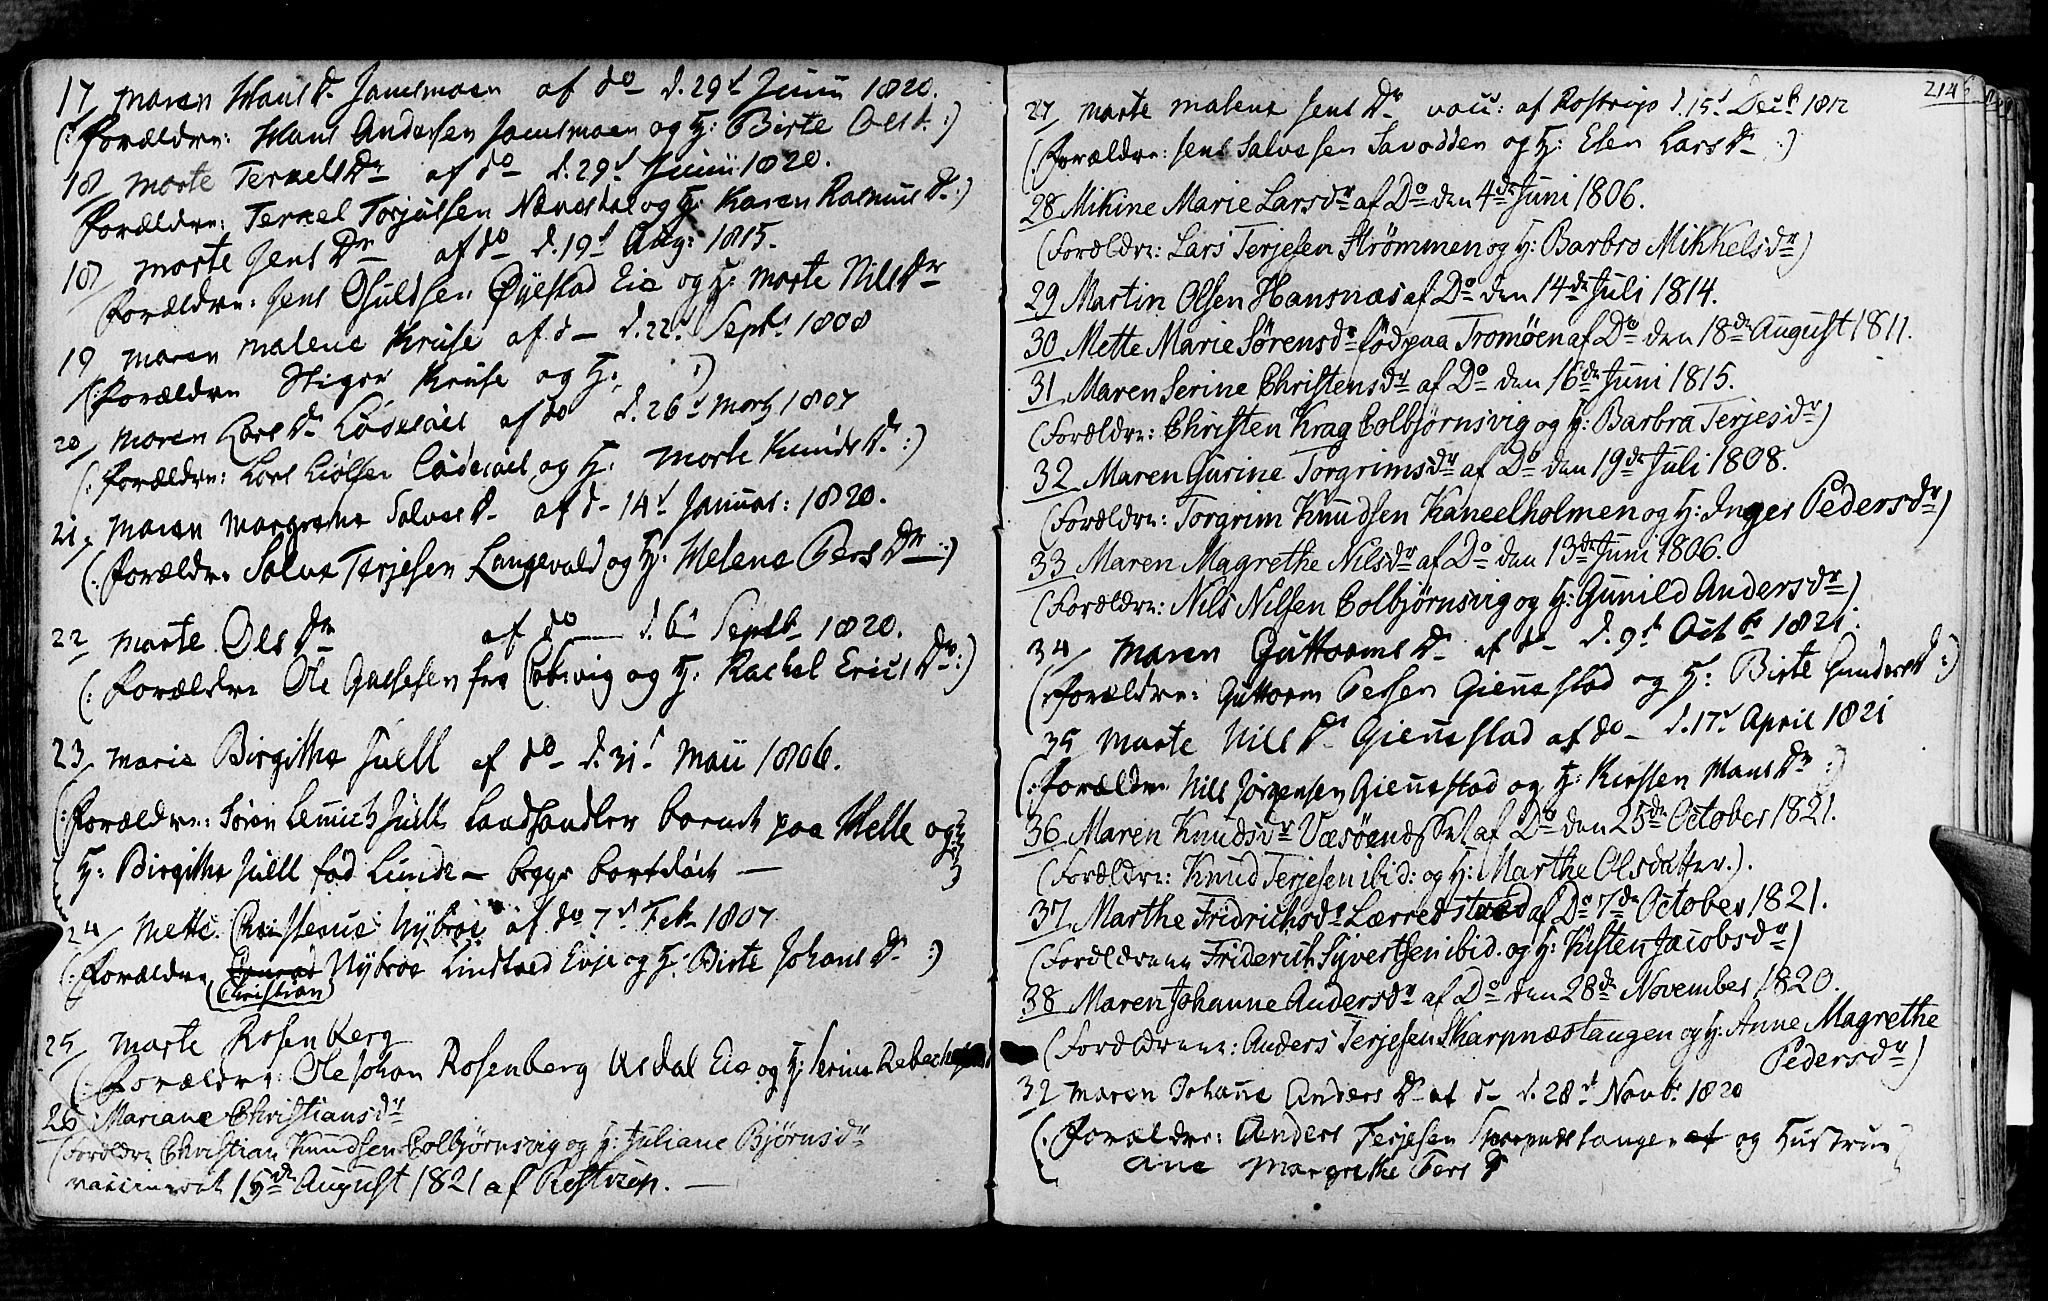 17/ Maren Hans Dr Jomsmoen af do d. 29d Junii 1820.
(: Forældre: Hans Andersen Jomsmoen og H: Birte Olsd. :)
18/ Marte Terkels Dr af do d. 29d Junii 1820.
Forældre: Terkel Torjulsen Næwesdal og H: Karen Rasmus Dr :)
18/ Marte Jens Dr af do d. 19d Aug: 1815.
Forældre: Jens Osuldsen Øyestad Eie og H: Marte Nils Dr
19/ Maren Malene Kruse af d- d. 22d Septb 1808
(Forældre Stiger Kruse og H: :)
20/ Maren Lars Dr af do d. 26d Marty 1807
(: Forældre: Lars og H: Marte Knuds Dr :)
21. Maren Margrethe Salves Dr af d- 14d Januar: 1820.
(: Forældre Salve Terjesen Langevold og H: Helene Pers Dr :)
22 Marte Ols Dr af do d. 6d Septb 1820.
(: Forældre Ole Gassesen fra og H: Rachel Erics Dr :)
23/ Marie Birgithe Juell af do d. 31d Maii 1806.
(Forældre: Søren Lemich Juell Landhandler boende paa Helle og
H: Birgithe Juell fød Lunde – begge bortdøde —
24/ Mette Christense Nybroe af do 7d Feb. 1807
(: Forældre Nybroe Lindtved Eie og H: Birte Johans Dr :)
(Christian)
25/ Marte Rosenberg
(: Forældre: Ole Johan Rosenberg Asdal Eie og H: Serine
26 Mariane Christiansdr
(Forældre Christian Knudsen Colbjørnsvig og H: Juliane Bjørnsdr
vaccineret 15de August 1821 af Rostrup. —
214
27/ Marte Malene Jens Dr vacc: af Rostrup d. 15d Decb 1812
(Forældre: Jens Salvesen Savodden og H: Elen Lars Dr :)
28 Mikine Marie Larsdr af Do den 4de Juni 1806.
(Forældre: Lars Terjesen Strømmen og H: Barbro Mikkelsdr)
29 Martin Olsen Hansnæs af Do den 14de Juli 1814.
30 Mette Marie Sørensdr fød paa Tromøen af Do den 18de August 1811.
31 Maren Serine Christensdr af Do den 16de Juni 1815.
(Forældre: Christen Krag Colbjørnsvig og H: Barbra Terjesdr)
32 Maren Gurine Torgrimsdr af Do den 19de Juli 1808.
(Forældre: Torgrim Knudsen Kaneelholmen og H: Inger Pedersdr)
33 Maren Magrethe Nilsdr af Do den 13de Juni 1806.
(Forældre: Nils Nilsen Colbjørnsvig og H: Gunild Andersdr)
34/ Maren Guttorms Dr af d- d. 9d Octb 1821.
(: Forældre: Guttorm Persen Gieusstad og H: Birte Gunders D :)
35 Marte Nils Dr Gieusstad af do – d. 17d April 1821
(: Forældre Nils Jørgensen Gieusstad og H: Kirsten Mans Dr :)
36 Maren Knudsdr Væsøen af Do den 25de October 1821.
(Forældre: Knud Terjesen ibid: og H: Marthe Olsdatter.)
37 Marthe Fridrichsdr Lærredstved af Do 7de October 1821.
(Forældrene Friderich Syvertsen ibid. og H: Kisten Jacobsdr)
38 Maren Johanne Andersdr af Do den 28de November 1820.
(Forældrene: Anders Terjesen Skarpnæstangen og H: Anne Magrethe
Pedersdr)
39 Maren Johane Anders Dr af d- d. 28d Novb. 1820
(: Forældre: Anders Terjesen og Hustrue
Ane Margrethe Pers D